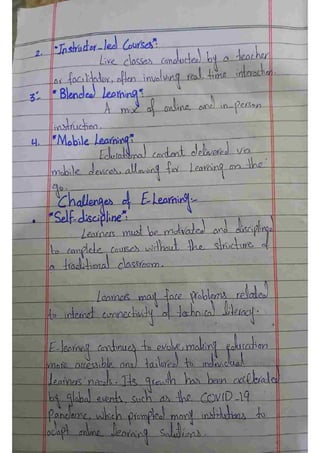 2. "Instructor-led Courses":
Live classes conducted by a teacher
or facilitator, often involving real time interaction.
3:- "Blended Learning":
A mix of online and in-person
instruction.
4. "Mobile Learning":
Educational content delivered via
mobile devices, allowing for learning on the
go.
Challenges of E-Learning:-
• "Self-discipline":
Learners must be motivated and discipline
to complete courses without the structure of
a traditional classroom.
Learners may face problems related
to internet connectivity of technical literacy.
E-learning continues to evolve, making education
more accessible and tailored to individual
learners needs. Its growth has been
by global events, such as the COVID-19
Pandemic, which prompted many institutions to
adapt online learning solutions.